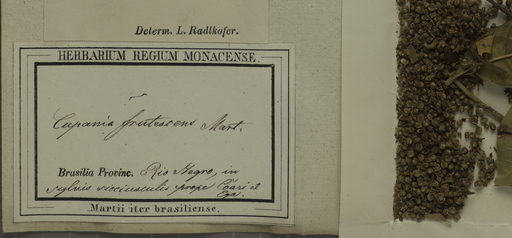 Determ. L. Radlkofer.
HERBARIUM REGIUM MONACENSE.
Cupania frutescens Mart.
Brasilia Provinc. Rio Negro, in
sylvis sicciusculis prope Coari et
Ega.
Martii iter brasiliense.